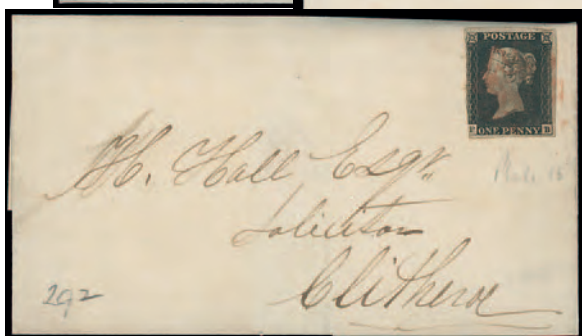 POSTAGE
ONE PENNY
H. Hall Esqr
Solicitor
Clitheroe
292